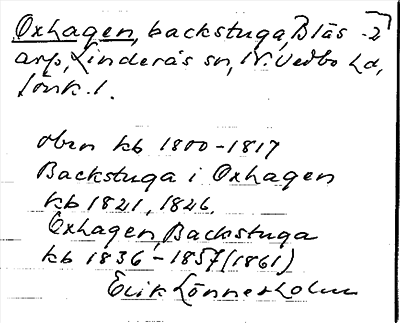 Oxhagen, backstuga, Blås -2
arp, Linderås sn, N. Vedbo hd,
Jönk. l.
oben kb 1800-1817
Backstuga i Oxhagen
kb 1821, 1826.
Oxhagen, Backstuga
kb 1836-1857 (1861)
Erik Lönnerholm